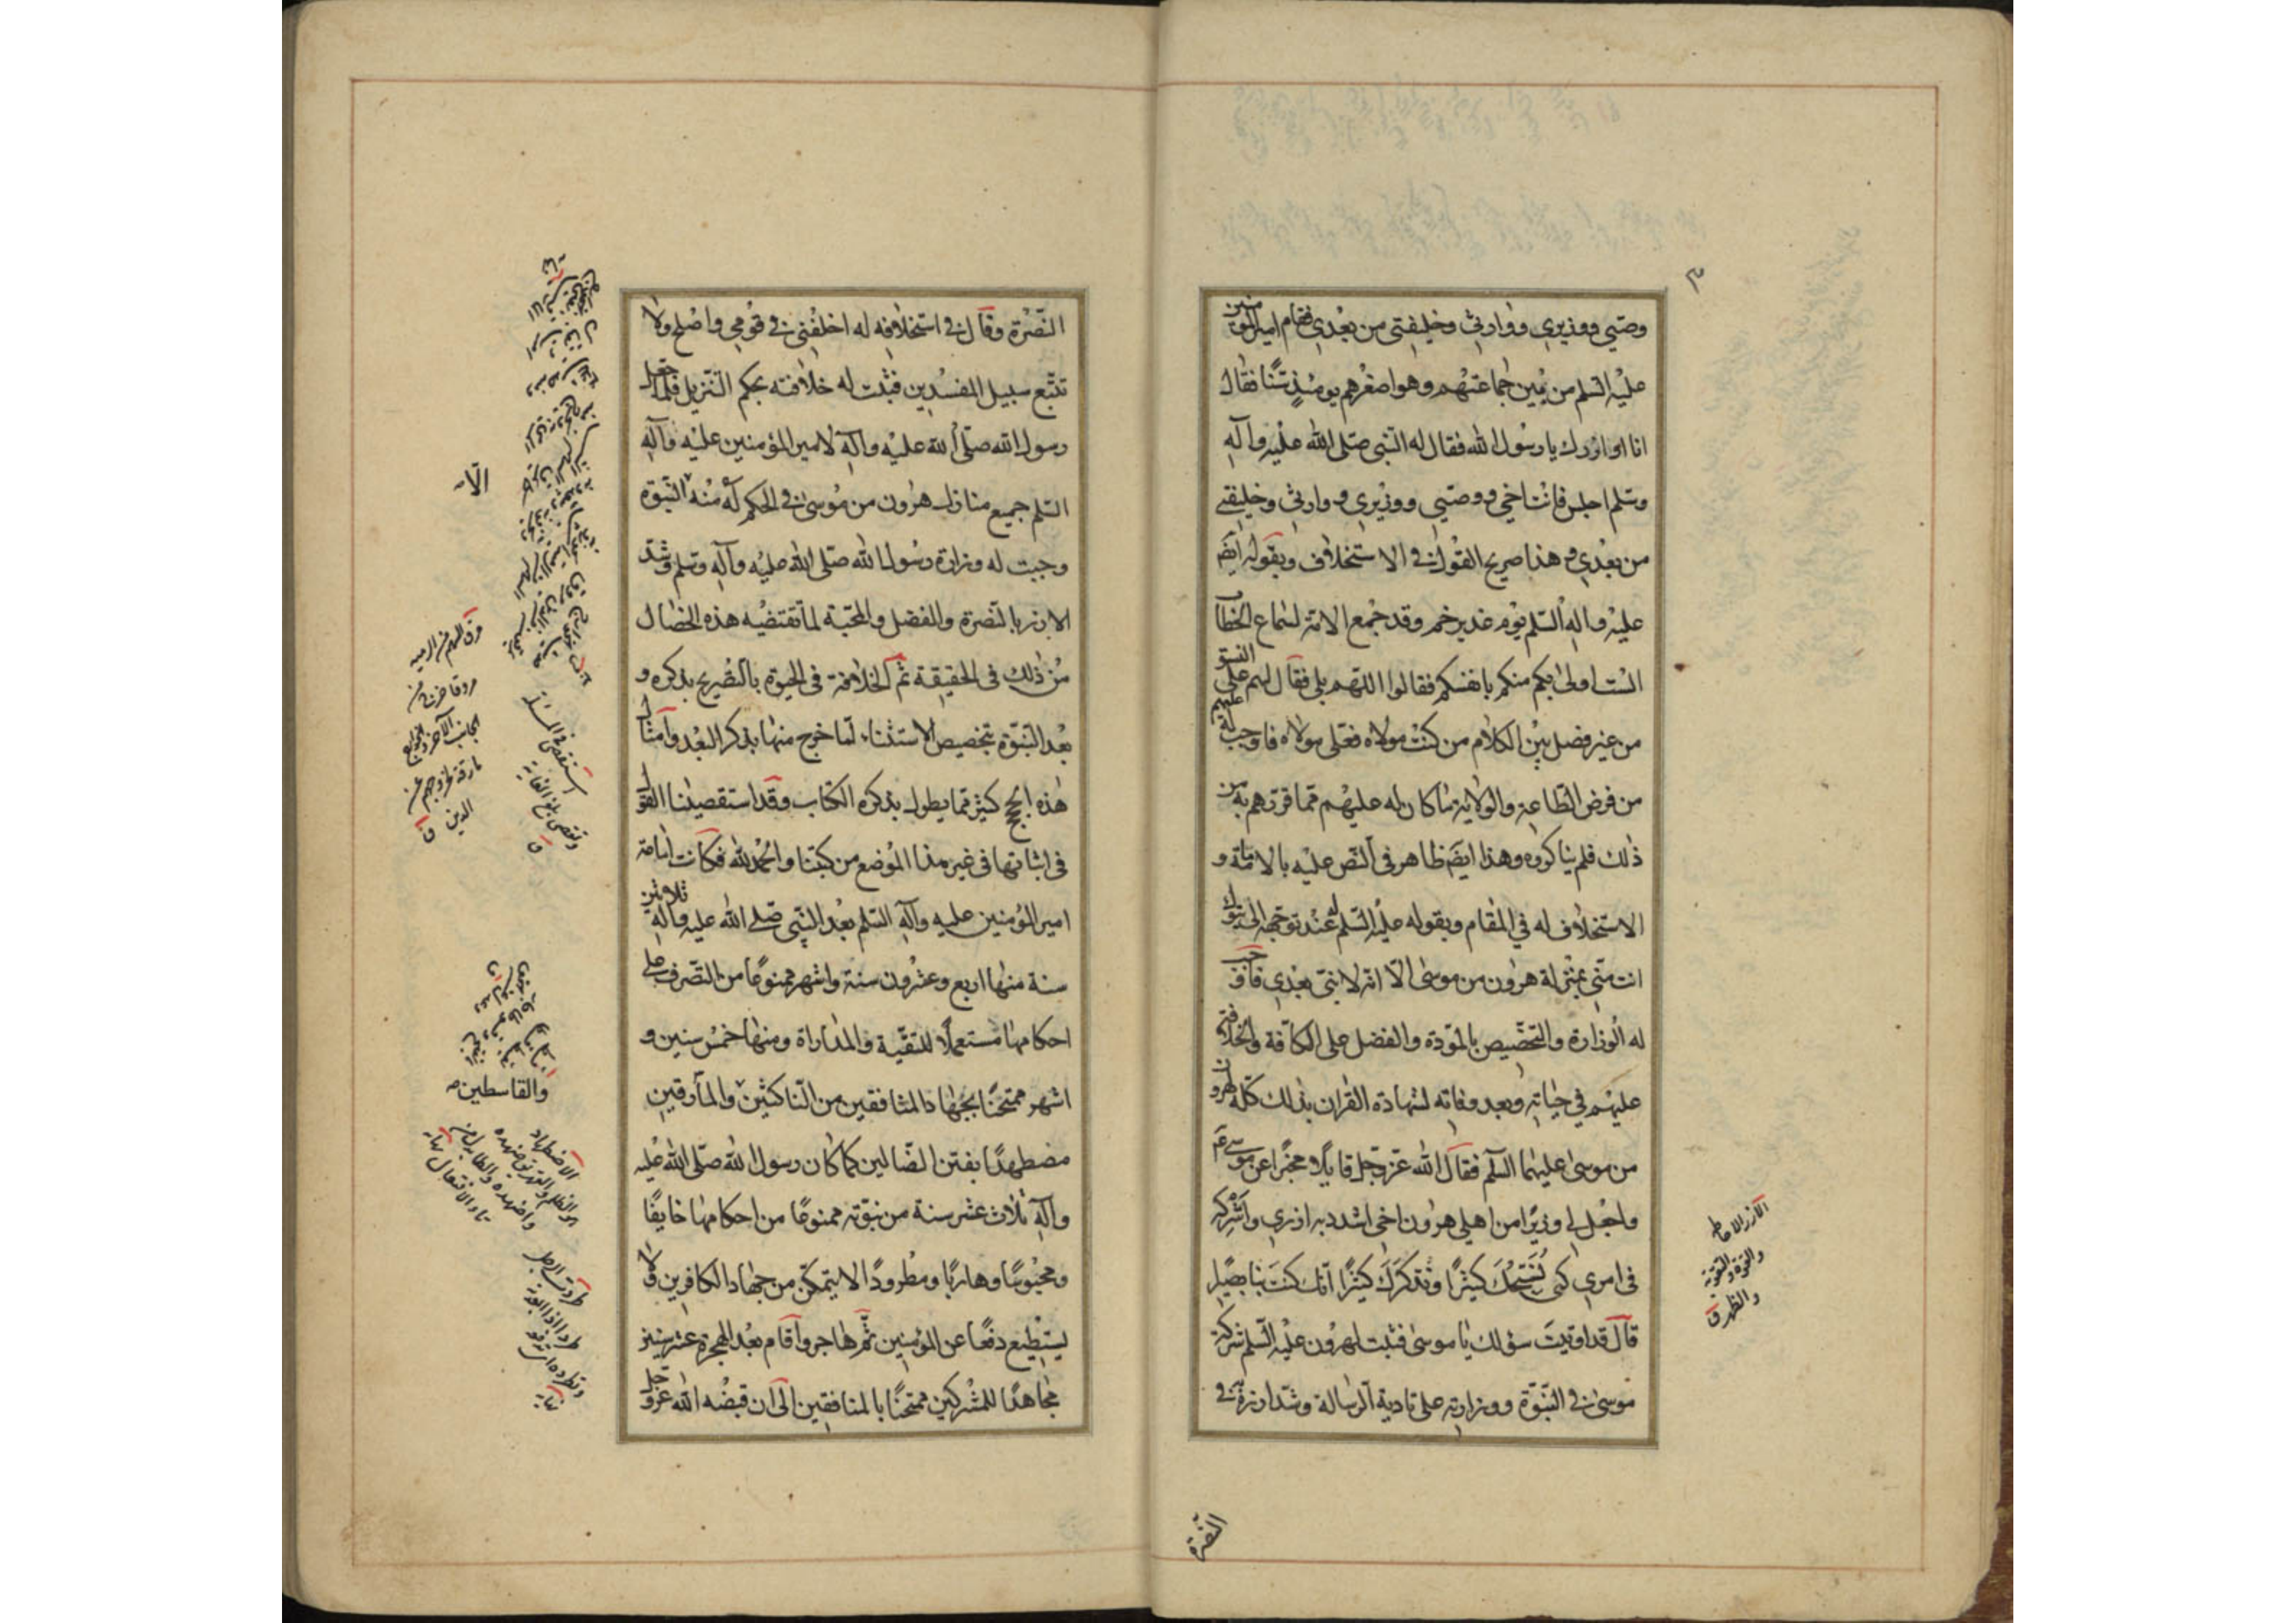 ٣
وصيي ووزيري ووارثي وخليفتي من بعدي فقام امير المؤمنين
عليه السلم من بين جماعتهم وهو اصغرهم يومئذٍ سنًّا فقال
انا اوازرك يا رسول الله فقال له النبي صلى الله عليه وآله
وسلم اجلس فانت اخي ووصيي ووزيري ووارثي وخليفتي
من بعدي وهذا صريح القول في الاستخلاف وبقوله ايضَم
عليه وآله السلم يوم غدير خم وقد جمع الامة لسماع الخطاب
الست اولى بكم منكم بانفسكم فقالوا اللهم بلى فقال لهم على النسق
من غير فصل بين الكلام من كنت مولاه فعلى مولاه فاوجب له عليهم
من فرض الطاعة والولاية ما كان له عليهم مما قررهم به من
ذلك فلم يناكروه وهذا ايضَم ظاهر في النص عليه بالامامة و
الاستخلاف له في المقام وبقوله عليه السلم له عند توجهه الى تبوك
انت منّي بمنزلة هرون من موسى الّا انه لا نبي بعدي فاوجب
له الوزارة والتخصيص بالمودة والفضل على الكافة والخلافة
عليهم في حياته وبعد وفاته لشهادة القران بذلك كله لهرون
من موسى عليهما السلم فقال الله عز وجل قايلا مخبرا عن موسى عم
واجعل لي وزيرًا من اهلي هرون اخي اشدد به ازري واشركه
في امري كى نسبحك كثيرًا ونذكرك كثيرًا انك كنت بنا بصيرًا
قال قد اوتيت سؤلك يا موسى فثبت لهرون عليه السلم شركة
موسى في النبوّة ووزارته على تادية الرسالة وشد ازره في
النصرة
الآزر الاحاطة
والقوة والتقوية
والظهر ق
النصرة وقال في استخلافه له اخلفني في قومي واصلح ولا
تتبع سبيل المفسدين فثبت له خلافته بحكم التنزيل فلما جعل
رسول الله صلى الله عليه وآله لامير المؤمنين عليه وآله
السلم جميع منازل هرون من موسى في الحكم له منه النبوّة
وجبت له وزارة رسول الله صلى الله عليه وآله وسلم وشد
الازر بالنصرة والفضل والمحبة لما تقتضيه هذه الخصال
من ذلك في الحقيقة ثم الخلافة في الحيوة بالتصريح بذكره و
بعد النبوّة بتخصيص الاستثناء لما خرج منها بذكر البعد وامثال
هذه الحجج كثيرة مما يطول بذكره الكتاب وقد استقصينا القول
في اثباتها في غير هذا الموضع من كتبنا والحمد لله فكانت امامة
امير المؤمنين عليه وآله السلم بعد النبي صلى الله عليه وآله ثلاثين
سنة منها اربع وعشرون سنة واشهر ممنوعًا من التصرف على
احكامها مستعملًا للتقية والمداراة ومنها خمس سنين و
اشهر ممتحنًا بجهاد المنافقين من الناكثين والمارقين
مضطهدًا بفتن الضالين كما كان رسول الله صلى الله عليه
وآله ثلاث عشر سنة من نبوّته ممنوعًا من احكامها خايفًا
ومحبوسًا وهاربًا ومطرودًا لا يتمكن من جهاد الكافرين ولا
يستطيع دفعًا عن المؤمنين ثم هاجر واقام بعد الهجرة عشر سنين
مجاهدًا للمشركين ممتحنًا بالمنافقين الى ان قبضه الله عز وجل
الّا
مرق السهم من الرمية
مروقا خرج من
الجانب الآخر والخوارج
مارقة لخروجهم عن
الدين ق
والقاسطين